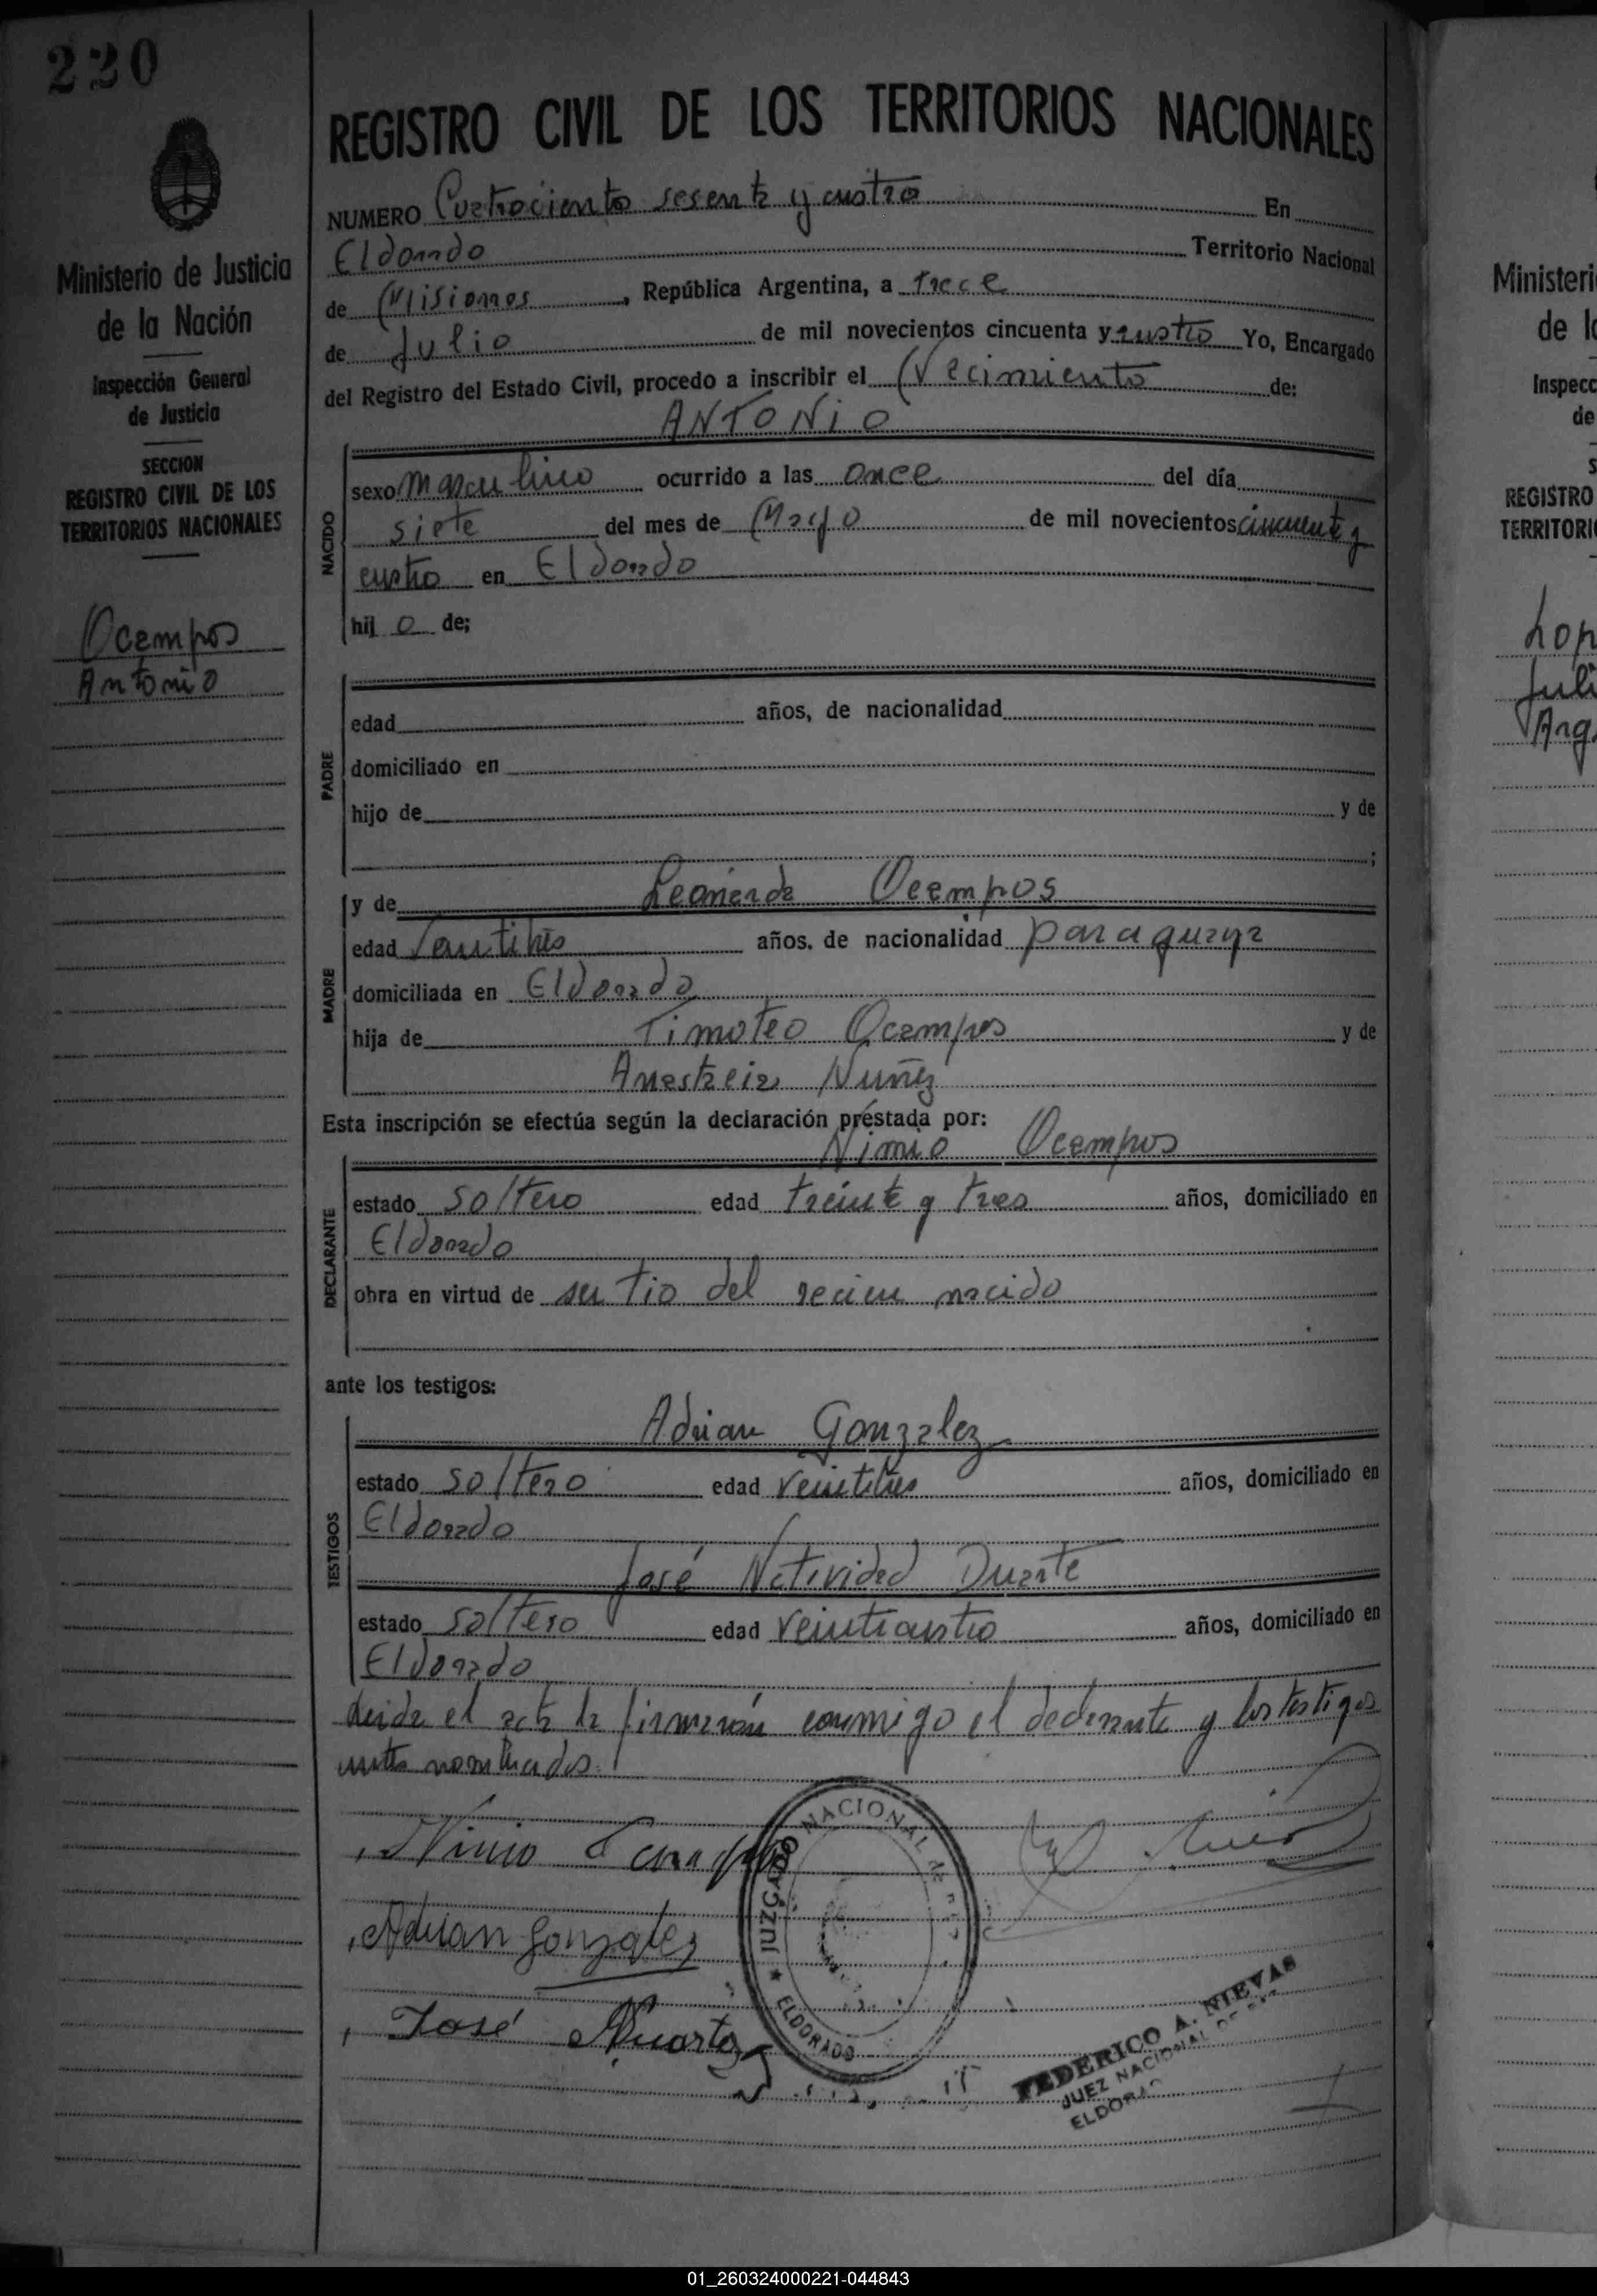 220
REGISTRO CIVIL DE LOS TERRITORIOS NACIONALES
Ministerio de Justicia
de la Nación
Inspección General
de Justicia
SECCION
REGISTRO CIVIL DE LOS
TERRITORIOS NACIONALES
Ocampos
Antonio
NUMERO Cuatrociento sesenta y cuatro En
Eldorado Territorio Nacional
de Misiones, República Argentina, a trece
de Julio de mil novecientos cincuenta y cuatro Yo, Encargado
del Registro del Estado Civil, procedo a inscribir el Nacimiento de:
ANTONIO
NACIDO
sexo masculino ocurrido a las once del día
siete del mes de Mayo de mil novecientos cincuenta y
cuatro en Eldorado
hij o de;
PADRE
edad años, de nacionalidad
domiciliado en
hijo de y de
;
MADRE
y de Leonarda Ocampos
edad años. de nacionalidad paraguaya
domiciliada en Eldorado
hija de Timoteo Ocampos y de
Anastacia Nuñez
Esta inscripción se efectúa según la declaración prestada por:
Nimio Ocampos
DECLARANTE
estado soltero edad treinta y tres años, domiciliado en
Eldorado
obra en virtud de ser tio del recien nacido
ante los testigos:
TESTIGOS
Adrian Gonzalez
estado soltero edad veintitres años, domiciliado en
Eldorado
José Natividad Duarte
estado soltero edad veinticuatro años, domiciliado en
Eldorado
Leida el acta la firmarón conmigo el declarante y los testigos
antes nombrados.
Nimio
Adrian Gonzalez
José Duarte
JUZGADO NACIONAL
★ ELDORADO
FEDERICO A. NIEVAS
JUEZ NACIONAL DE
ELDORAD
Ministeri
de l
Inspecc
de
S
REGISTRO
TERRITORI
Lop
Juli
Arg.
01_260324000221-044843